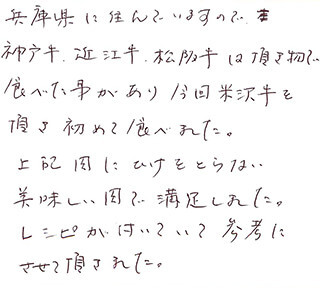 兵庫県に住んでいますので
神戸牛、近江牛、松阪牛は頂き物で
食べた事があり今回米沢牛を
頂き初めて食べました。
上記肉にひけをとらない
美味しい肉で満足しました。
レシピが付いていて参考に
させて頂きました。